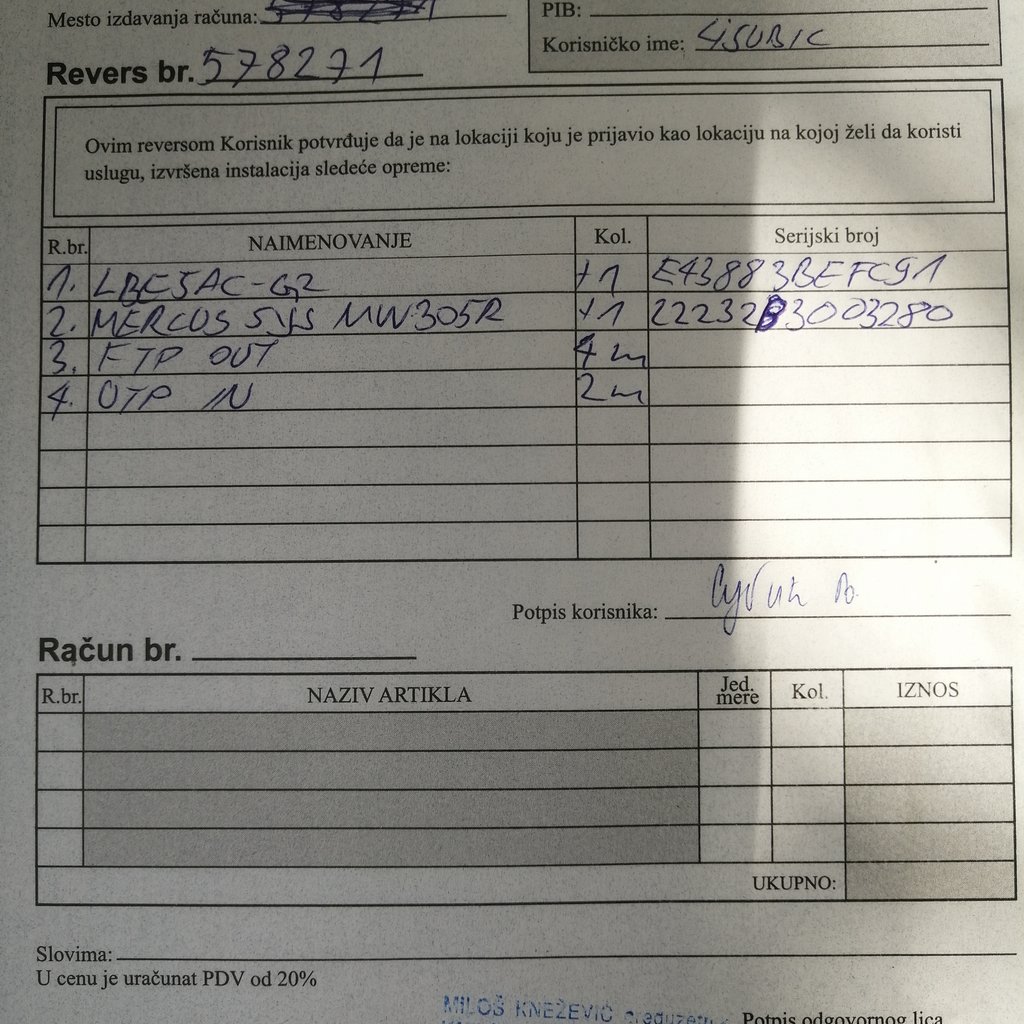 Mesto izdavanja računa:
PIB:
Korisničko ime: SISUBIC
Revers br. 578271
Ovim reversom Korisnik potvrđuje da je na lokaciji koju je prijavio kao lokaciju na kojoj želi da koristi
uslugu, izvršena instalacija sledeće opreme:
R.br. NAIMENOVANJE Kol. Serijski broj
1. LBE5AC-G2 +1 E43883BEFC91
2. MERCUSSYS MW305R +1 2223283003280
3. FTP OUT 4 m
4. UTP IN 2 m
Potpis korisnika:
Račun br.
R.br. NAZIV ARTIKLA Jed. mere Kol. IZNOS
UKUPNO:
Slovima:
U cenu je uračunat PDV od 20%
MILOŠ KNEŽEVIĆ preduzetn
Potpis odgovornog lica